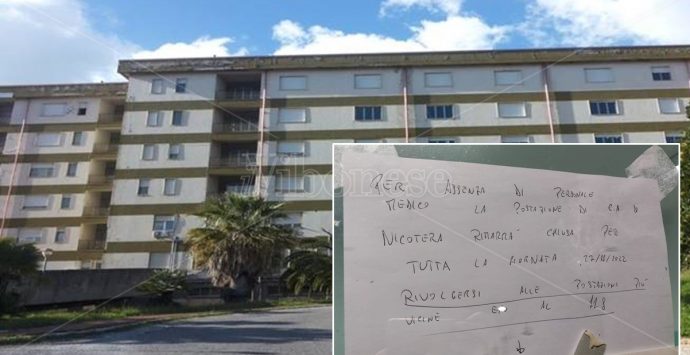 Il Vibonese
PER ASSENZA DI PERSONALE
MEDICO LA POSTAZIONE DI C.A D
NICOTERA RIMARRA' CHIUSA PER
TUTTA LA GIORNATA 27/11/2022
RIVOLGERSI ALLE POSTAZIONI PIÙ
VICINE E AL 118